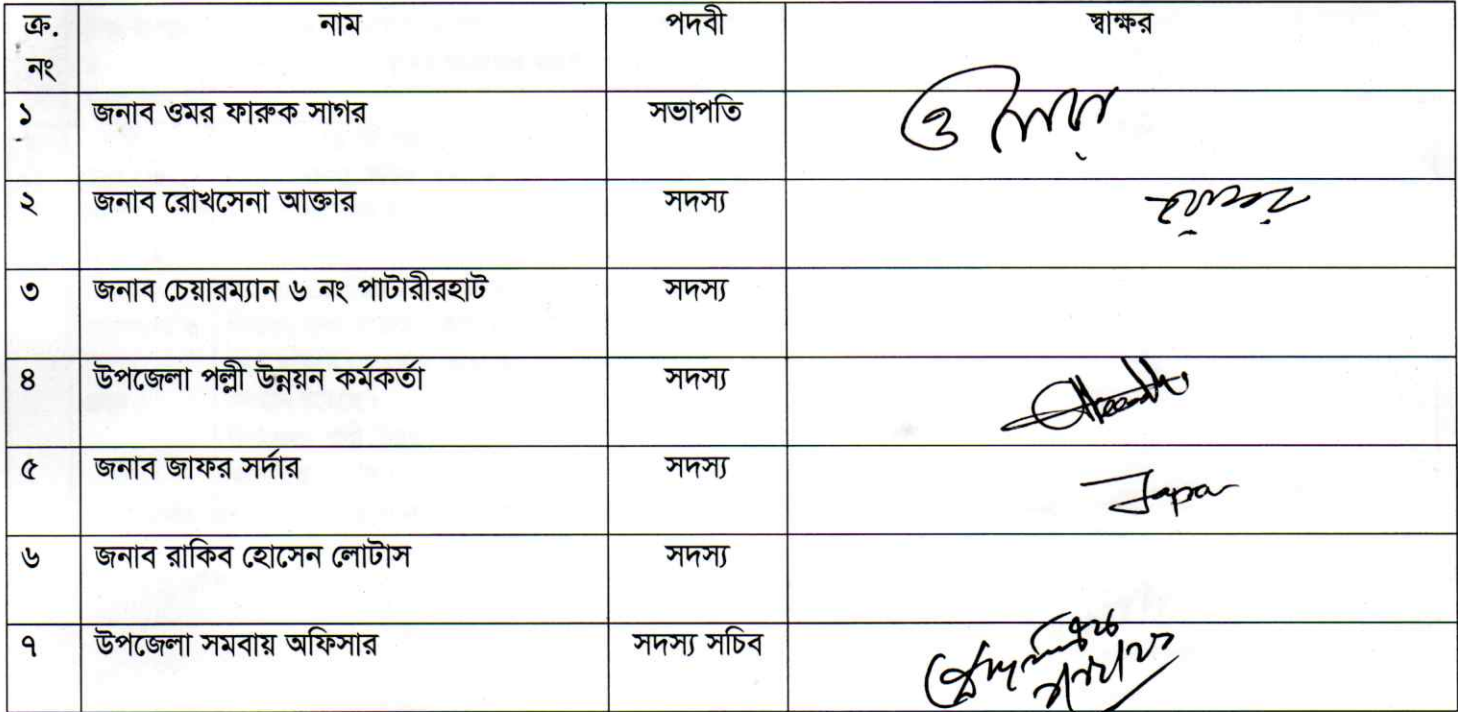 ক্র. নং নাম পদবী স্বাক্ষর
১ জনাব ওমর ফারুক সাগর সভাপতি
২ জনাব রোখসেনা আক্তার সদস্য
৩ জনাব চেয়ারম্যান ৬ নং পাটারীরহাট সদস্য
৪ উপজেলা পল্লী উন্নয়ন কর্মকর্তা সদস্য
৫ জনাব জাফর সর্দার সদস্য
৬ জনাব রাকিব হোসেন লোটাস সদস্য
৭ উপজেলা সমবায় অফিসার সদস্য সচিব